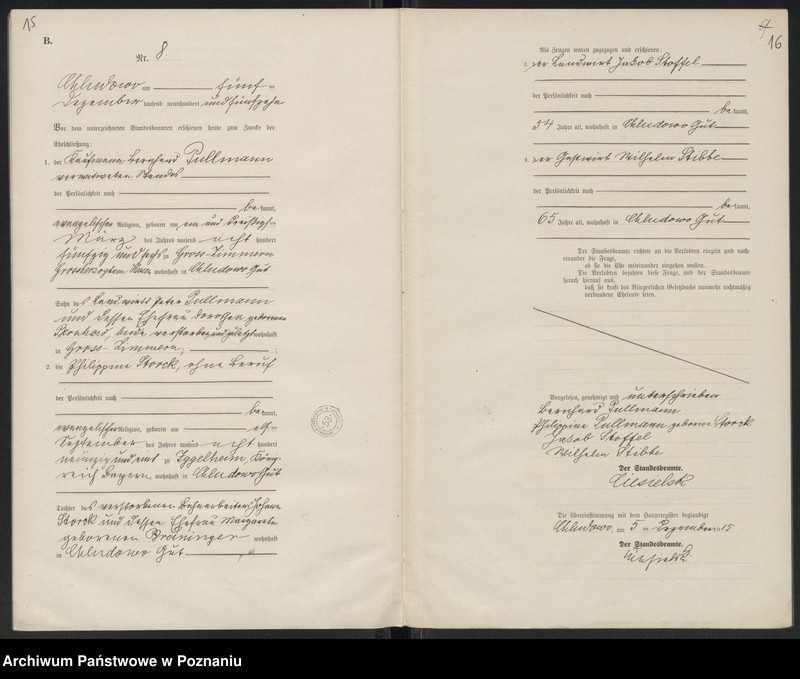 15
B.
Nr. 8
Chludowo am fünf ten
Dezember tausend neunhundert und fünfzehn
Vor dem unterzeichneten Standesbeamten erschienen heute zum Zwecke der
Eheschließung:
1. der Kaufmann Bernhard Pullmann
verwitweten Standes
der Persönlichkeit nach
be kannt,
evangelischer Religion, geboren am ein und dreißigsten
März des Jahres tausend acht hundert
fünfzig und sechs zu Gross-Zimmern
Grossherzogtum Hessen, wohnhaft in Chludowo Gut
Sohn des Landwirts Peter Pullmann
und dessen Ehefrau Dorothea geborenen
beide verstorben und zuletzt wohnhaft
in Gross-Zimmern,
2. die Philippine Storck, ohne Beruf
der Persönlichkeit nach
be kannt,
evangelischer Religion, geboren am elf ten
September des Jahres tausend acht hundert
neunzig und eins zu Iggelheim, König-
reich Bayern, wohnhaft in Chludowo Gut
Tochter des verstorbenen Bahnarbeiters Johann
Storck und dessen Ehefrau Margareta
geborenen Breininger wohnhaft
in Chludowo Gut
16
Als Zeugen waren zugezogen und erschienen:
3. der Landwirt Jakob Stoffel
der Persönlichkeit nach
be kannt,
54 Jahre alt, wohnhaft in Chludowo Gut
4. der Gastwirt Wilhelm Stibbe
der Persönlichkeit nach
be kannt,
65 Jahre alt, wohnhaft in Chludowo Gut
Der Standesbeamte richtete an die Verlobten einzeln und nach-
einander die Frage,
ob sie die Ehe miteinander eingehen wollen.
Die Verlobten bejahten diese Frage, und der Standesbeamte
sprach hierauf aus,
daß sie kraft des Bürgerlichen Gesetzbuchs nunmehr rechtmäßig
verbundene Eheleute seien.
Vorgelesen, genehmigt und unterschrieben
Bernhard Pullmann
Philippine Pullmann geborene Storck
Jakob Stoffel
Wilhelm Stibbe
Der Standesbeamte.
Ciesielsk
Die Übereinstimmung mit dem Hauptregister beglaubigt
Chludowo, am 5 ten Dezember 1915
Der Standesbeamte.
Archiwum Państwowe w Poznaniu